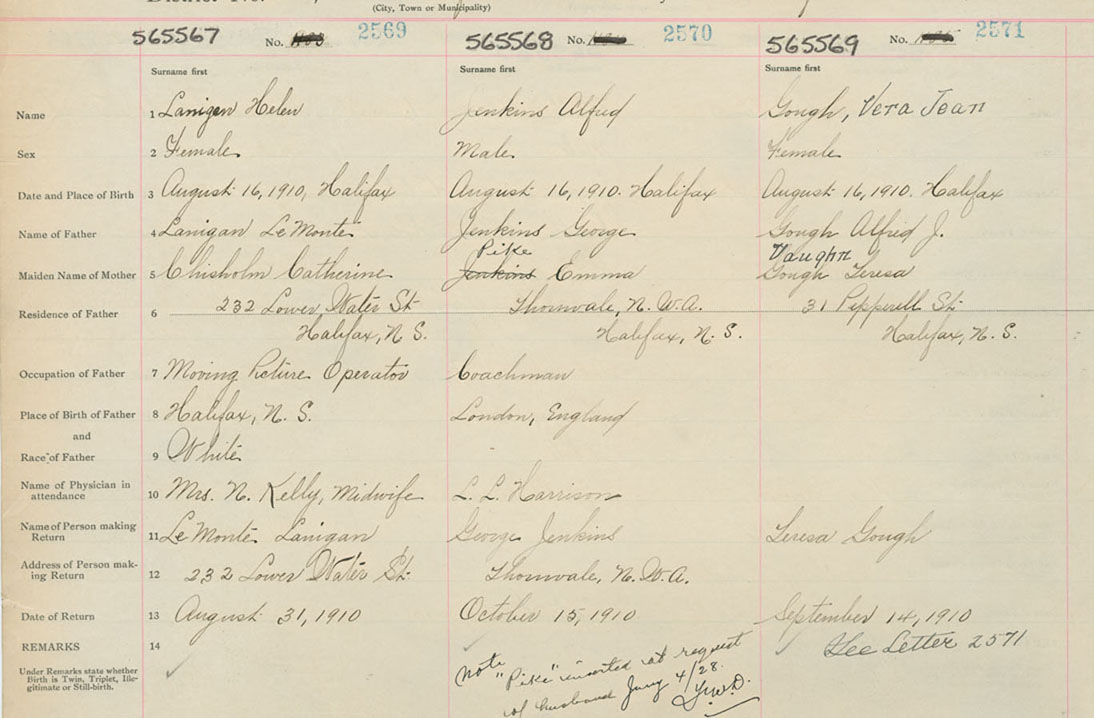 District No.
(City, Town or Municipality)
565567 No. 2569 565568 No. 2570 565569 No. 2571
Surname first Surname first Surname first
Name 1 Lanigan Helen Jenkins Alfred Gough, Vera Jean
Sex 2 Female Male Female
Date and Place of Birth 3 August 16, 1910, Halifax August 16, 1910. Halifax August 16, 1910. Halifax
Name of Father 4 Lanigan LeMonte Jenkins George Gough Alfred J.
Pike Vaughn
Maiden Name of Mother 5 Chisholm Catherine Jenkins Emma Gough Teresa
Residence of Father 6 232 Lower Water St Thornvale, N.W.A. 31 Pepperell St
Halifax, N.S. Halifax, N.S. Halifax, N.S.
Occupation of Father 7 Moving Picture Operator Coachman
Place of Birth of Father 8 Halifax, N.S. London, England
and
Race of Father 9 White
Name of Physician in
attendance 10 Mrs. N. Kelly, Midwife L. L. Harrison
Name of Person making
Return 11 LeMonte Lanigan George Jenkins Teresa Gough
Address of Person mak-
ing Return 12 232 Lower Water St. Thornvale, N.W.A.
Date of Return 13 August 31, 1910 October 15, 1910 September 14, 1910
REMARKS 14 See Letter 2571
Under Remarks state whether
Birth is Twin, Triplet, Ille-
gitimate or Still-birth.
Note "Pike" inserted at request
of husband Jany 4/28.